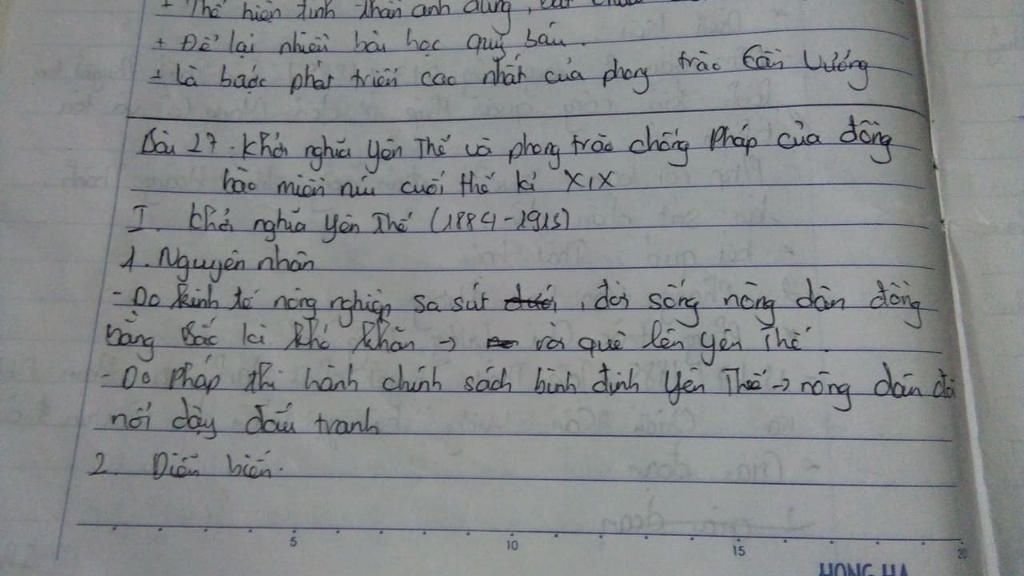 + Thể hiện tinh thần anh dũng,
+ Để lại nhiều bài học quý báu.
+ Là bước phát triển cao nhất của phong trào Cần Vương
Bài 27. Khởi nghĩa Yên Thế và phong trào chống Pháp của đồng
bào miền núi cuối thế kỉ XIX
I. Khởi nghĩa Yên Thế (1884-1913)
1. Nguyên nhân
- Do kinh tế nông nghiệp sa sút, đời sống nông dân đồng
bằng Bắc kì khó khăn → rời quê lên Yên Thế.
- Do Pháp thi hành chính sách bình định Yên Thế → nông dân đã
nổi dậy đấu tranh
2. Diễn biến.
5 10 15 20
HONG HA